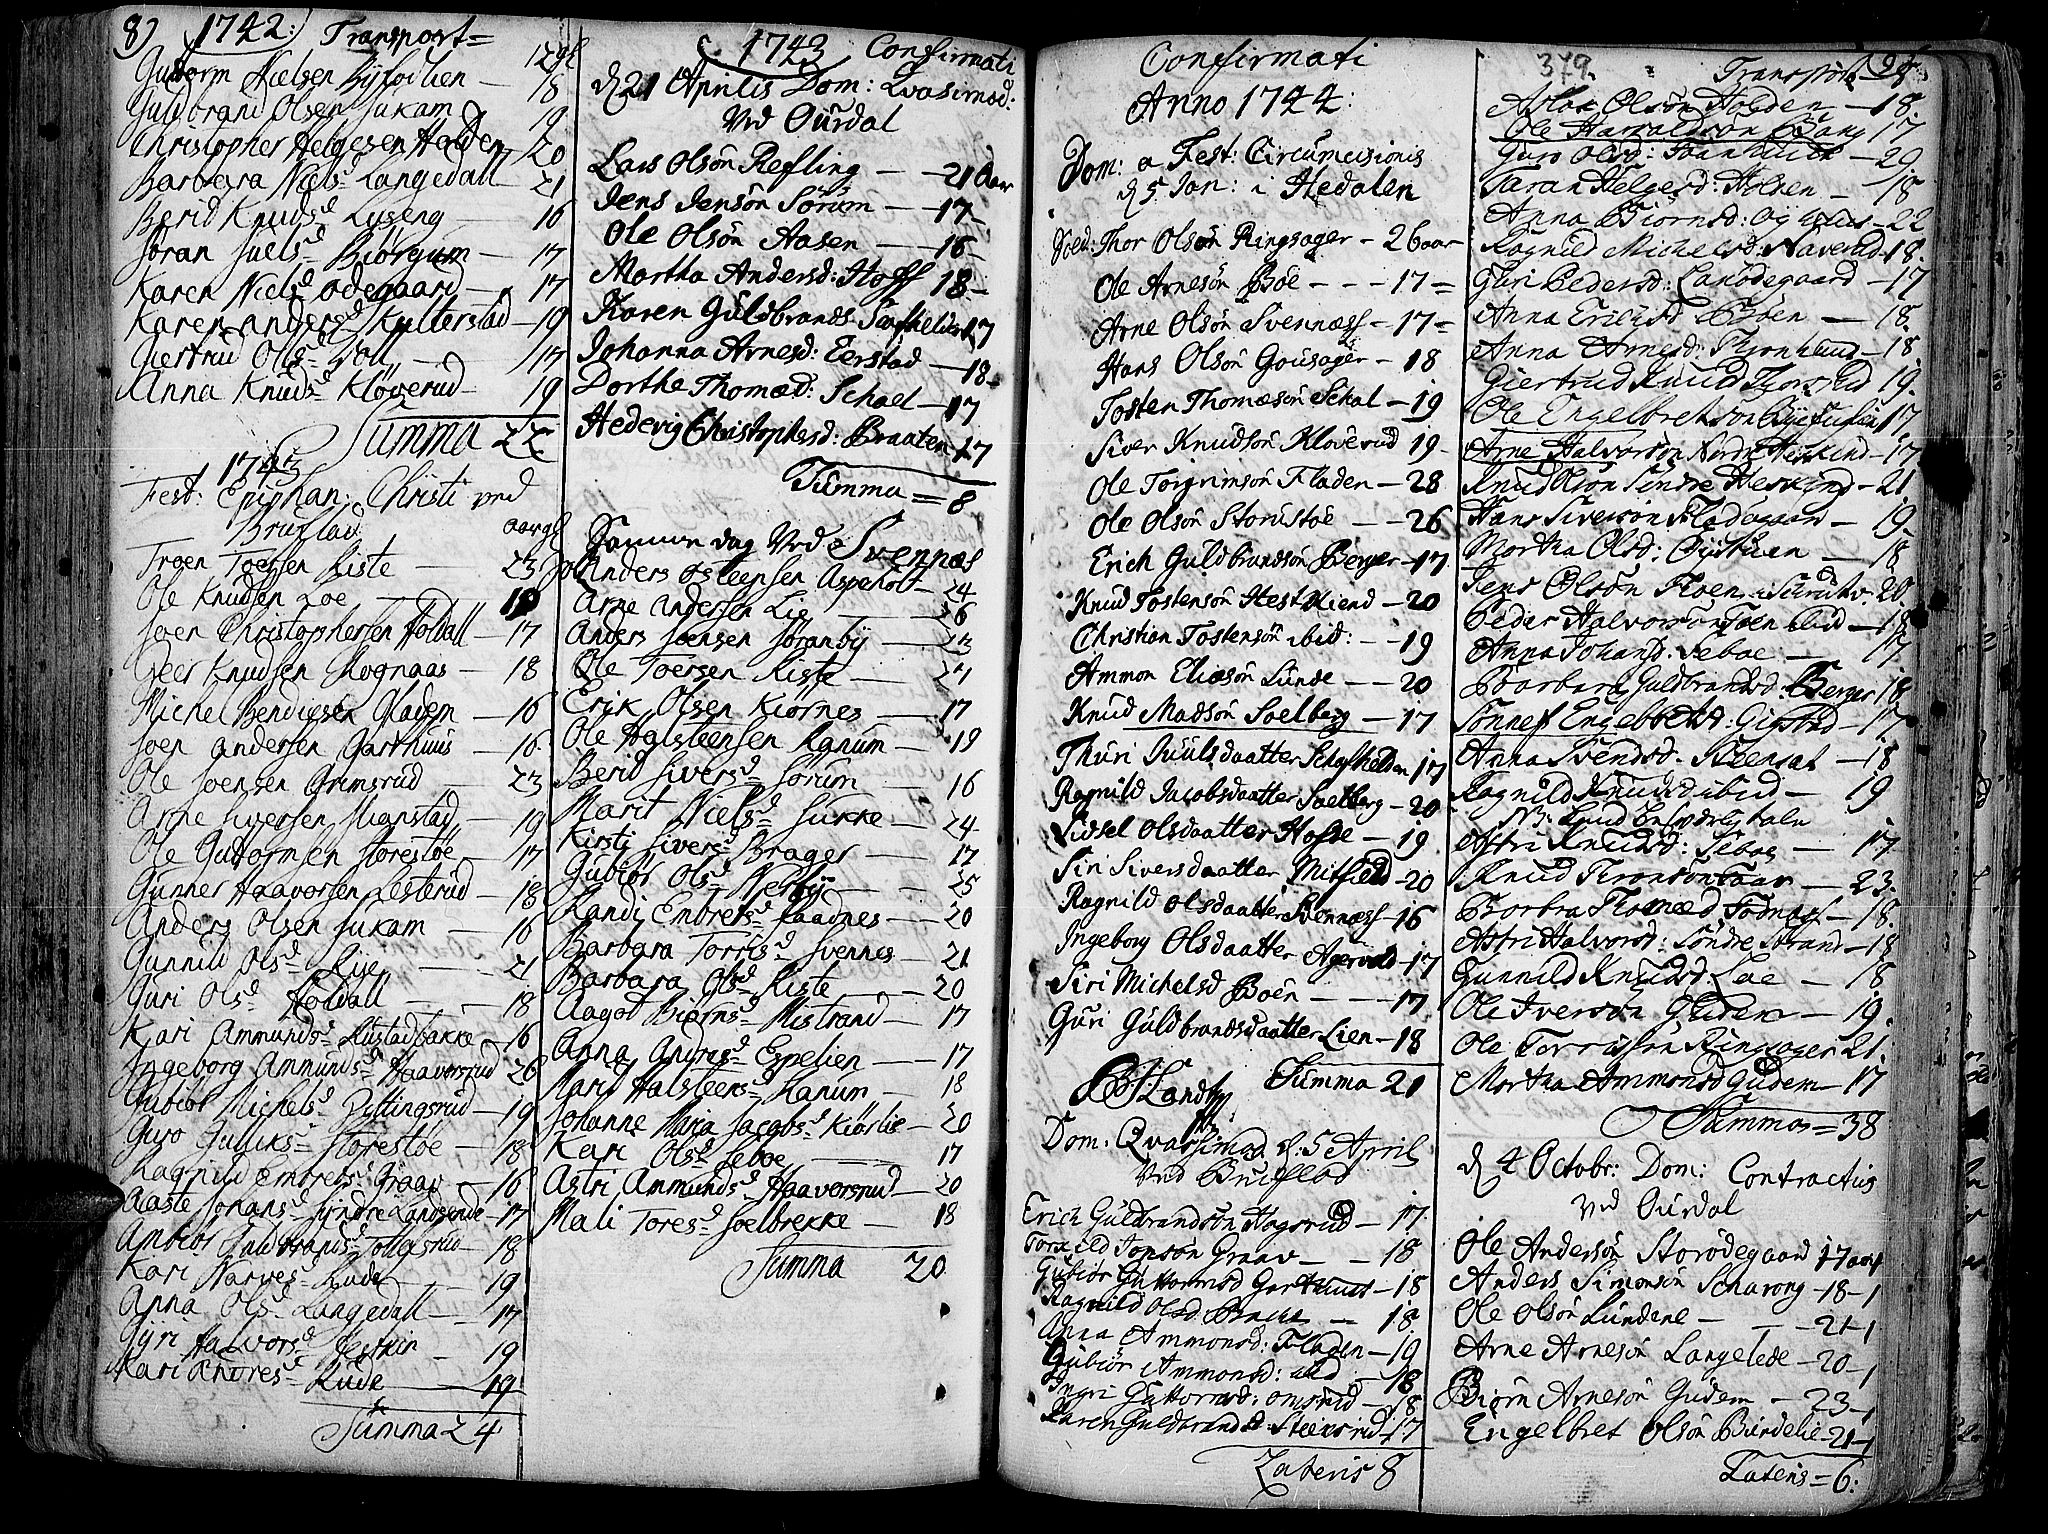 8) 1742: Transport=
12 gl
Guttorm Nielsen Byfoslien — 18
Guldbrand Olsen Jukam — 19
Christopher Helgesen Halden 20
Barbara Niels.d Langedall — 21
Berid Knuds.d Lyseng — 16
Joran Juels.d Biørgum — 17
Karen Niels.d Ødegaard — 17
Karen Anders.d Kulterstad — 19
Giertrud Ols.d Woll — 17
Anna Knuds.d Kløverud — 19
Summa 22
1743
Fest: Epiphan: Christi ved
Bruflad aar gl
Troen Toersen Riste — 23
Ole Knudsen Loe — 19
Joen Christophersen Holdall — 17
Geer Knudsen Rognaas — 18
Michel Bendixsen Fladen — 16
Joen Andersen Garthuus — 16
Ole Joensen Grimsrud — 23
Arne Siversen Mienstad — 19
Ole Guttormsen Storestøe — 17
Gunner Haavorsen Lesterud — 18
Anders Olsen Jukam — 16
Gunnild Ols.d Rye — 21
Guri Ols.d Holdall — 18
Kari Ammunds.d Rustadbakke — 16
Ingeborg Ammunds.d Haavorsrud 26
Gubiør Michels.d Dyttingsrud — 19
Guro Gulliks.d Storestøe — 18
Ragnild Embrets.d Graav — 16
Aaste Johans.d Søndre Landsende — 17
Ambiør Guldbrands.d Tollefsrud — 18
Kari Narves.d Rude — 19
Anna Ols.d Langedall — 17
Gyri Halvors.d Hestkin — 19
Kari Endres.d Rude — 19
Summa 24
1743 Confirmati
d 21 Aprilis Dom: Qvasimod:
Ved Ourdal
Lars Olsøn Refling — 21 Aar
Jens Jensøn Sørum — 17
Ole Olsøn Aasen — 18
Martha Andersd: Hoff 18
Karen Guldbrands Skafhelden 17
Johanna Arnesd: Eerstad — 18
Dorthe Thomæd: Schael — 17
Hedevig Christophersd: Braaten 17
Summa = 8
Samme dag Ved Svennæs
Anders Østeensen Aspeholt — 24
Arne Andersen Lie — 26
Anders Joensen Joranby — 23
Ole Toersen Riste — 21
Erik Olsen Kiørnes — 17
Ole Halsteensen Ranum — 19
Berid Sivers.d Sørum — 16
Marit Niels.d Jukke — 24
Kirsti Sivers.d Brager — 17
Gubiør Ols.d Nerby — 25
Randi Embrets.d Faadnes — 20
Barbara Torris.d Svennes — 21
Barbara Ols.d Riste — 20
Aagot Biørns.d Mistrand — 17
Anna Andres.d Espelien — 17
Marit Halsteens.d Ranum — 18
Johanne Maria Jacobs.d Kiørlie — 20
Kari Ols.d Seboe — 17
Astri Ammunds.d Haavorsrud — 20
Mali Tores.d Joelbrekke — 18
Summa 20
Confirmati
Anno 1744:
Dom: a Fest: Circumcisionis
d 5 Jan: i Hedalen
Thor Olsøn Ringsager — 26 aar
Ole Arnesøn Bøe — 17
Arne Olsøn Svennæss — 17
Hans Olsøn Gousager — 18
Tosten Thomæsøn Schal — 19
Siver Knudsøn Kloverud 19
Ole Torgrimsøn Fladen — 28
Ole Olsøn Storustøe — 26
Erich Guldbrandsøn Berger — 17
Knud Tostensøn Hestkiend — 20
Christian Tostensøn ibid: — 19
Ammon Eliæsøn Lunde — 20
Knud Madsøn Soelberg — 17
Thuri Juulsdaatter Schafhelden 17
Ragnild Jacobsdaatter Soelberg — 20
Sidsel Olsdaatter Hofde — 19
Siri Siversdaatter Mitfield — 20
Ragnild Olsdaatter Svennæss — 16
Ingeborg Olsdaatter Agervold — 17
Siri Michelsd Boen — 17
Guri Guldbrandsdaatter Lien — 18
Summa 21
Dom: Qvasimod d: 5 April
Ved Bruflad
Erich Guldbrandsøn Hogsrud — 17
Torkild Jonsøn Graav — 18
Gubiør Guttormsd Garthuus — 18
Ragnild Olsd Brache — 18
Anna Ammonsd: Fladen — 19
Gubiør Ammonsd: ibid — 18
Ingri Guttormsd: Omsrud — 18
Karen Guldbrandsd Steensrud 17
Lateris 8
379. Transport
Aslak Olsøn Holden — 18
Ole Haraldsøn Bang 17
Guro Olsd: Tronhuus — 20
Jaran Helgesd: Holden — 18
Anna Biørnsd: — 22
Ragnild Michelsd: Haverud 18
Guri Pedersd: Lanødegaard — 17
Anna Erichsd Bøen — 18
Anna Arnesd: Thronhuus — 18
Giertrud Knudsd 19
Ole Engelbretsøn Byfuslien 17
Arne Halvorsøn Nordre Heskind — 17
Knud Olsøn Søndre Heskind — 21
Hans Siversøn Fladegaard — 19
Martha Olsd: Øystuen — 18
Jens Olsøn Floen 20
Peder Halvorsøn Floen ibid — 18
Anna Johansd: Seboe — 17
Barbara Guldbrandsd: Berger 18
Sønnef Engebretsd: Gigstad — 17
Anna Svendsd: Steensæt — 18
Ragnild Knudsd ibid — 19
Astri Knudsd: Seboe — 17
Knud Tronsøn — 23
Barbra Thomæd Fodnæss — 18
Astri Halvorsd: Søndre Strand — 18
Gunnild Knudsd: Loe — 18
Ole Iversøn Gudem — 19
Ole Torrissøn Ringsager 21
Martha Ammonsd Gudem — 17
Summa = 38
d 4 Octobr: Dom: Contractus
ved Ourdal
Ole Andersøn Storødegaard 17 aar
Anders Simonsøn Schavong — 18
Ole Olsøn Lundene — 21
Arne Arnesøn Langelede — 20
Biørn Arnesøn Gudem — 23
Engelbret Olsøn Burdelie — 21
Lateris = 6: